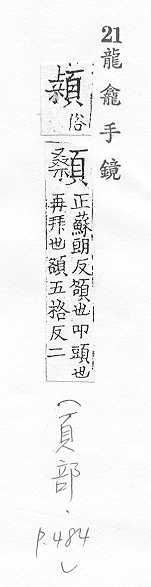 21 龍龕手鏡
俗
顙
正蘇朗反頟也叩頭也
再拜也頟五挌反二
(頁部．p.484)